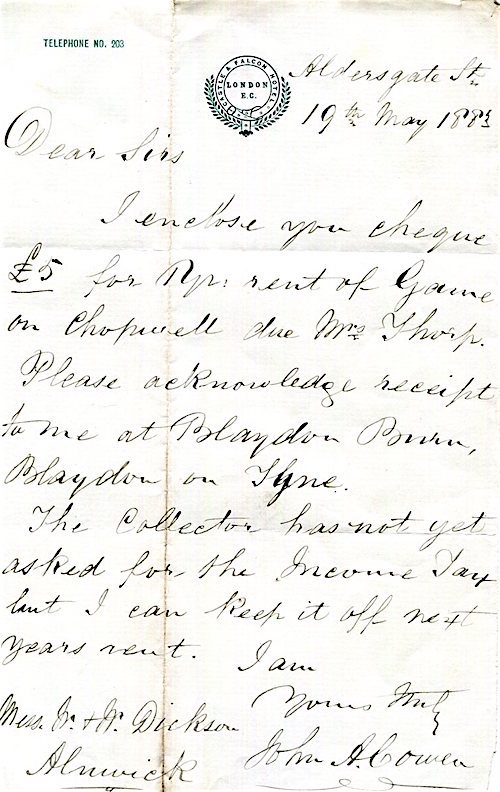 TELEPHONE NO. 203
CASTLE & FALCON HOTEL
LONDON
E.C.
Aldersgate St.
19th May 1883
Dear Sirs
I enclose you cheque
£5 for ½ yr: rent of Game
on Chopwell due Mrs Thorp.
Please acknowledge receipt
to me at Blaydon Burn,
Blaydon on Tyne.
The Collector has not yet
asked for the Income Tax
but I can keep it off next
years rent.
I am
Yours truly
John A. Cowen
Mess. W. & W. Dickson
Alnwick